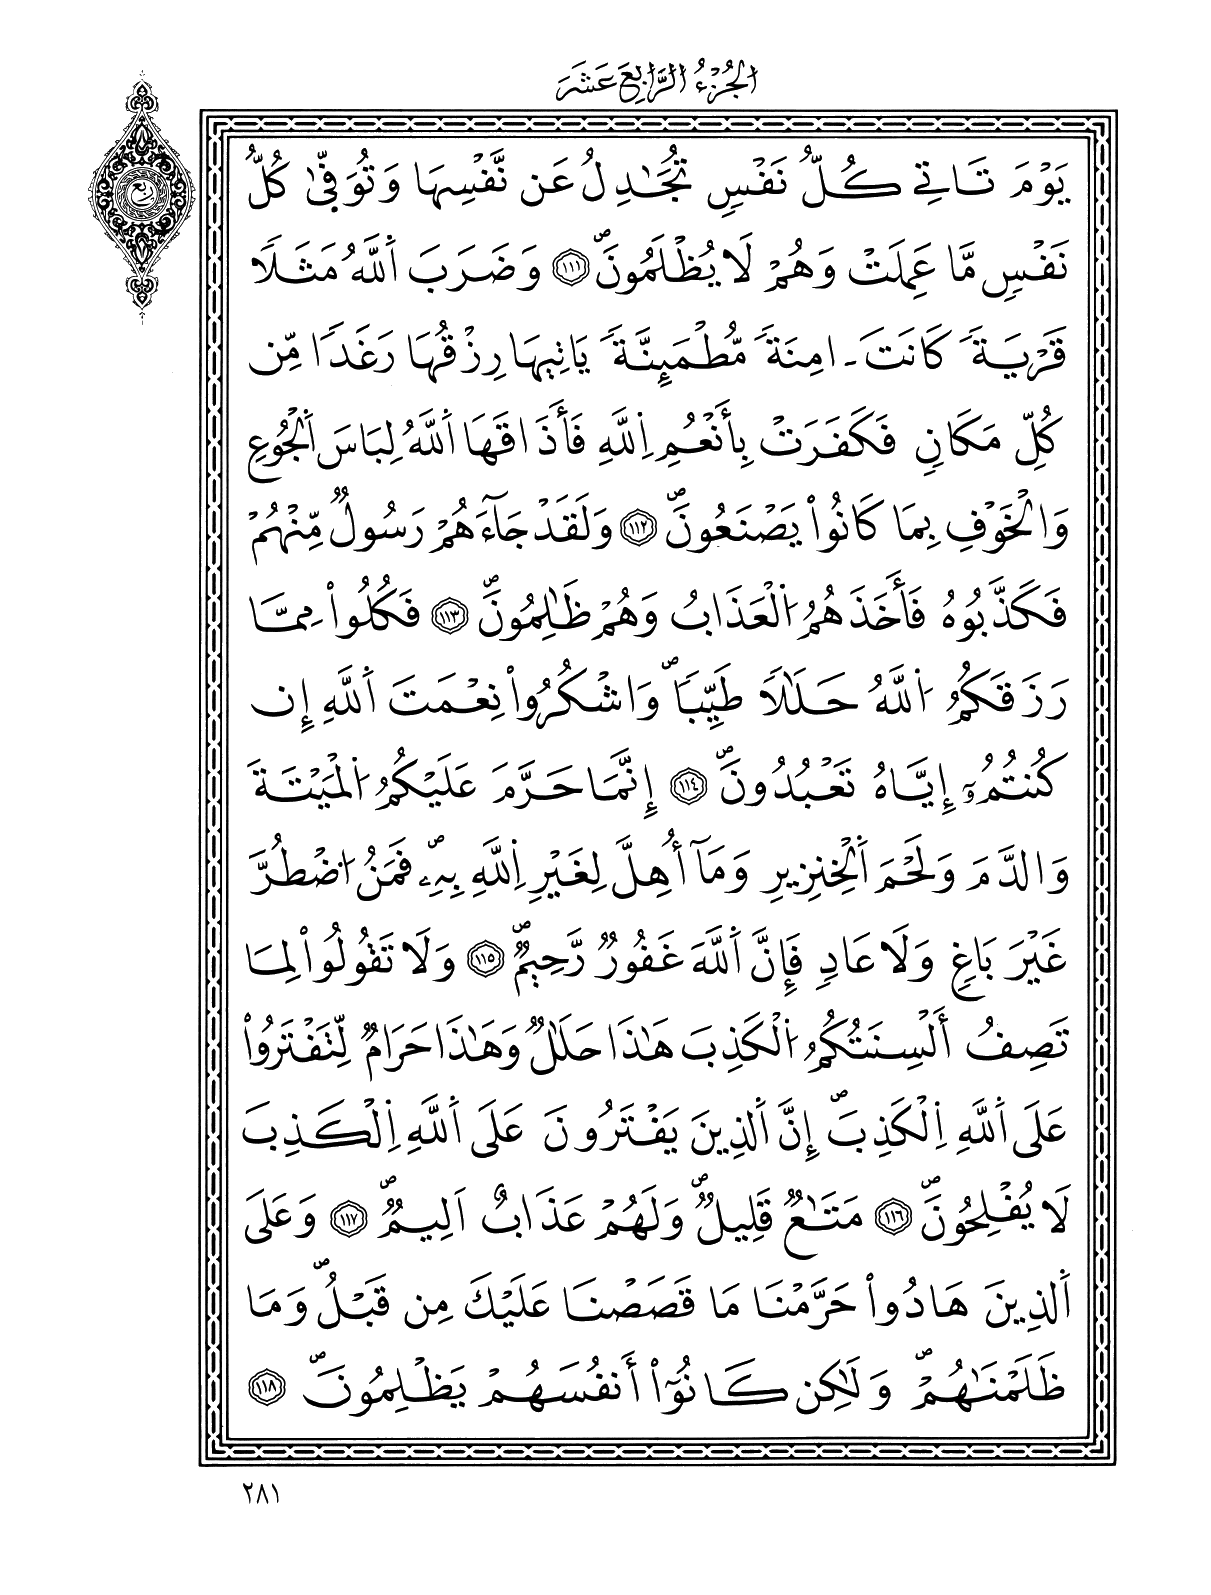 الجُزْءُ الرَّابِعَ عَشَرَ
ربع
يَوْمَ تَاتِے كُلُّ نَفْسٖ تُجَٰدِلُ عَن نَّفْسِهَا وَتُوَفّ۪ىٰ كُلُّ
نَفْسٖ مَّا عَمِلَتْ وَهُمْ لَا يُظْلَمُونَۖ ۝١١١ وَضَرَبَ اَ۬للَّهُ مَثَلٗا
قَرْيَةٗ كَانَتَ ـ اٰمِنَةٗ مُّطْمَئِنَّةٗ يَاتِيهَا رِزْقُهَا رَغَدٗا مِّن
كُلِّ مَكَانٖ فَكَفَرَتْ بِأَنْعُمِ اِ۬للَّهِ فَأَذَٰقَهَا اَ۬للَّهُ لِبَاسَ اَ۬لْجُوعِ
وَالْخَوْفِ بِمَا كَانُواْ يَصْنَعُونَۖ ۝١١٢ وَلَقَدْ جَآءَهُمْ رَسُولٞ مِّنْهُمْ
فَكَذَّبُوهُ فَأَخَذَهُمُ اُ۬لْعَذَابُ وَهُمْ ظَٰلِمُونَۖ ۝١١٣ فَكُلُواْ مِمَّا
رَزَقَكُمُ اُ۬للَّهُ حَلَٰلٗا طَيِّبٗاۖ وَاشْكُرُواْ نِعْمَتَ اَ۬للَّهِ إِن
كُنتُمُۥٓ إِيَّاهُ تَعْبُدُونَۖ ۝١١٤ إِنَّمَا حَرَّمَ عَلَيْكُمُ اُ۬لْمَيْتَةَ
وَالدَّمَ وَلَحْمَ اَ۬لْخِنزِيرِ وَمَآ أُهِلَّ لِغَيْرِ اِ۬للَّهِ بِهِۦۖ فَمَنُ اُ۟ضْطُرَّ
غَيْرَ بَاغٖ وَلَا عَادٖ فَإِنَّ اَ۬للَّهَ غَفُورٞ رَّحِيمٞۖ ۝١١٥ وَلَا تَقُولُواْ لِمَا
تَصِفُ أَلْسِنَتُكُمُ اُ۬لْكَذِبَ هَٰذَا حَلَٰلٞ وَهَٰذَا حَرَامٞ لِّتَفْتَرُواْ
عَلَى اَ۬للَّهِ اِ۬لْكَذِبَۖ إِنَّ اَ۬لذِينَ يَفْتَرُونَ عَلَى اَ۬للَّهِ اِ۬لْكَذِبَ
لَا يُفْلِحُونَۖ ۝١١٦ مَتَٰعٞ قَلِيلٞۖ وَلَهُمْ عَذَابٌ اَلِيمٞۖ ۝١١٧ وَعَلَى
اَ۬لذِينَ هَادُواْ حَرَّمْنَا مَا قَصَصْنَا عَلَيْكَ مِن قَبْلُۖ وَمَا
ظَلَمْنَٰهُمْۖ وَلَٰكِن كَانُوٓاْ أَنفُسَهُمْ يَظْلِمُونَۖ ۝١١٨
٢٨١